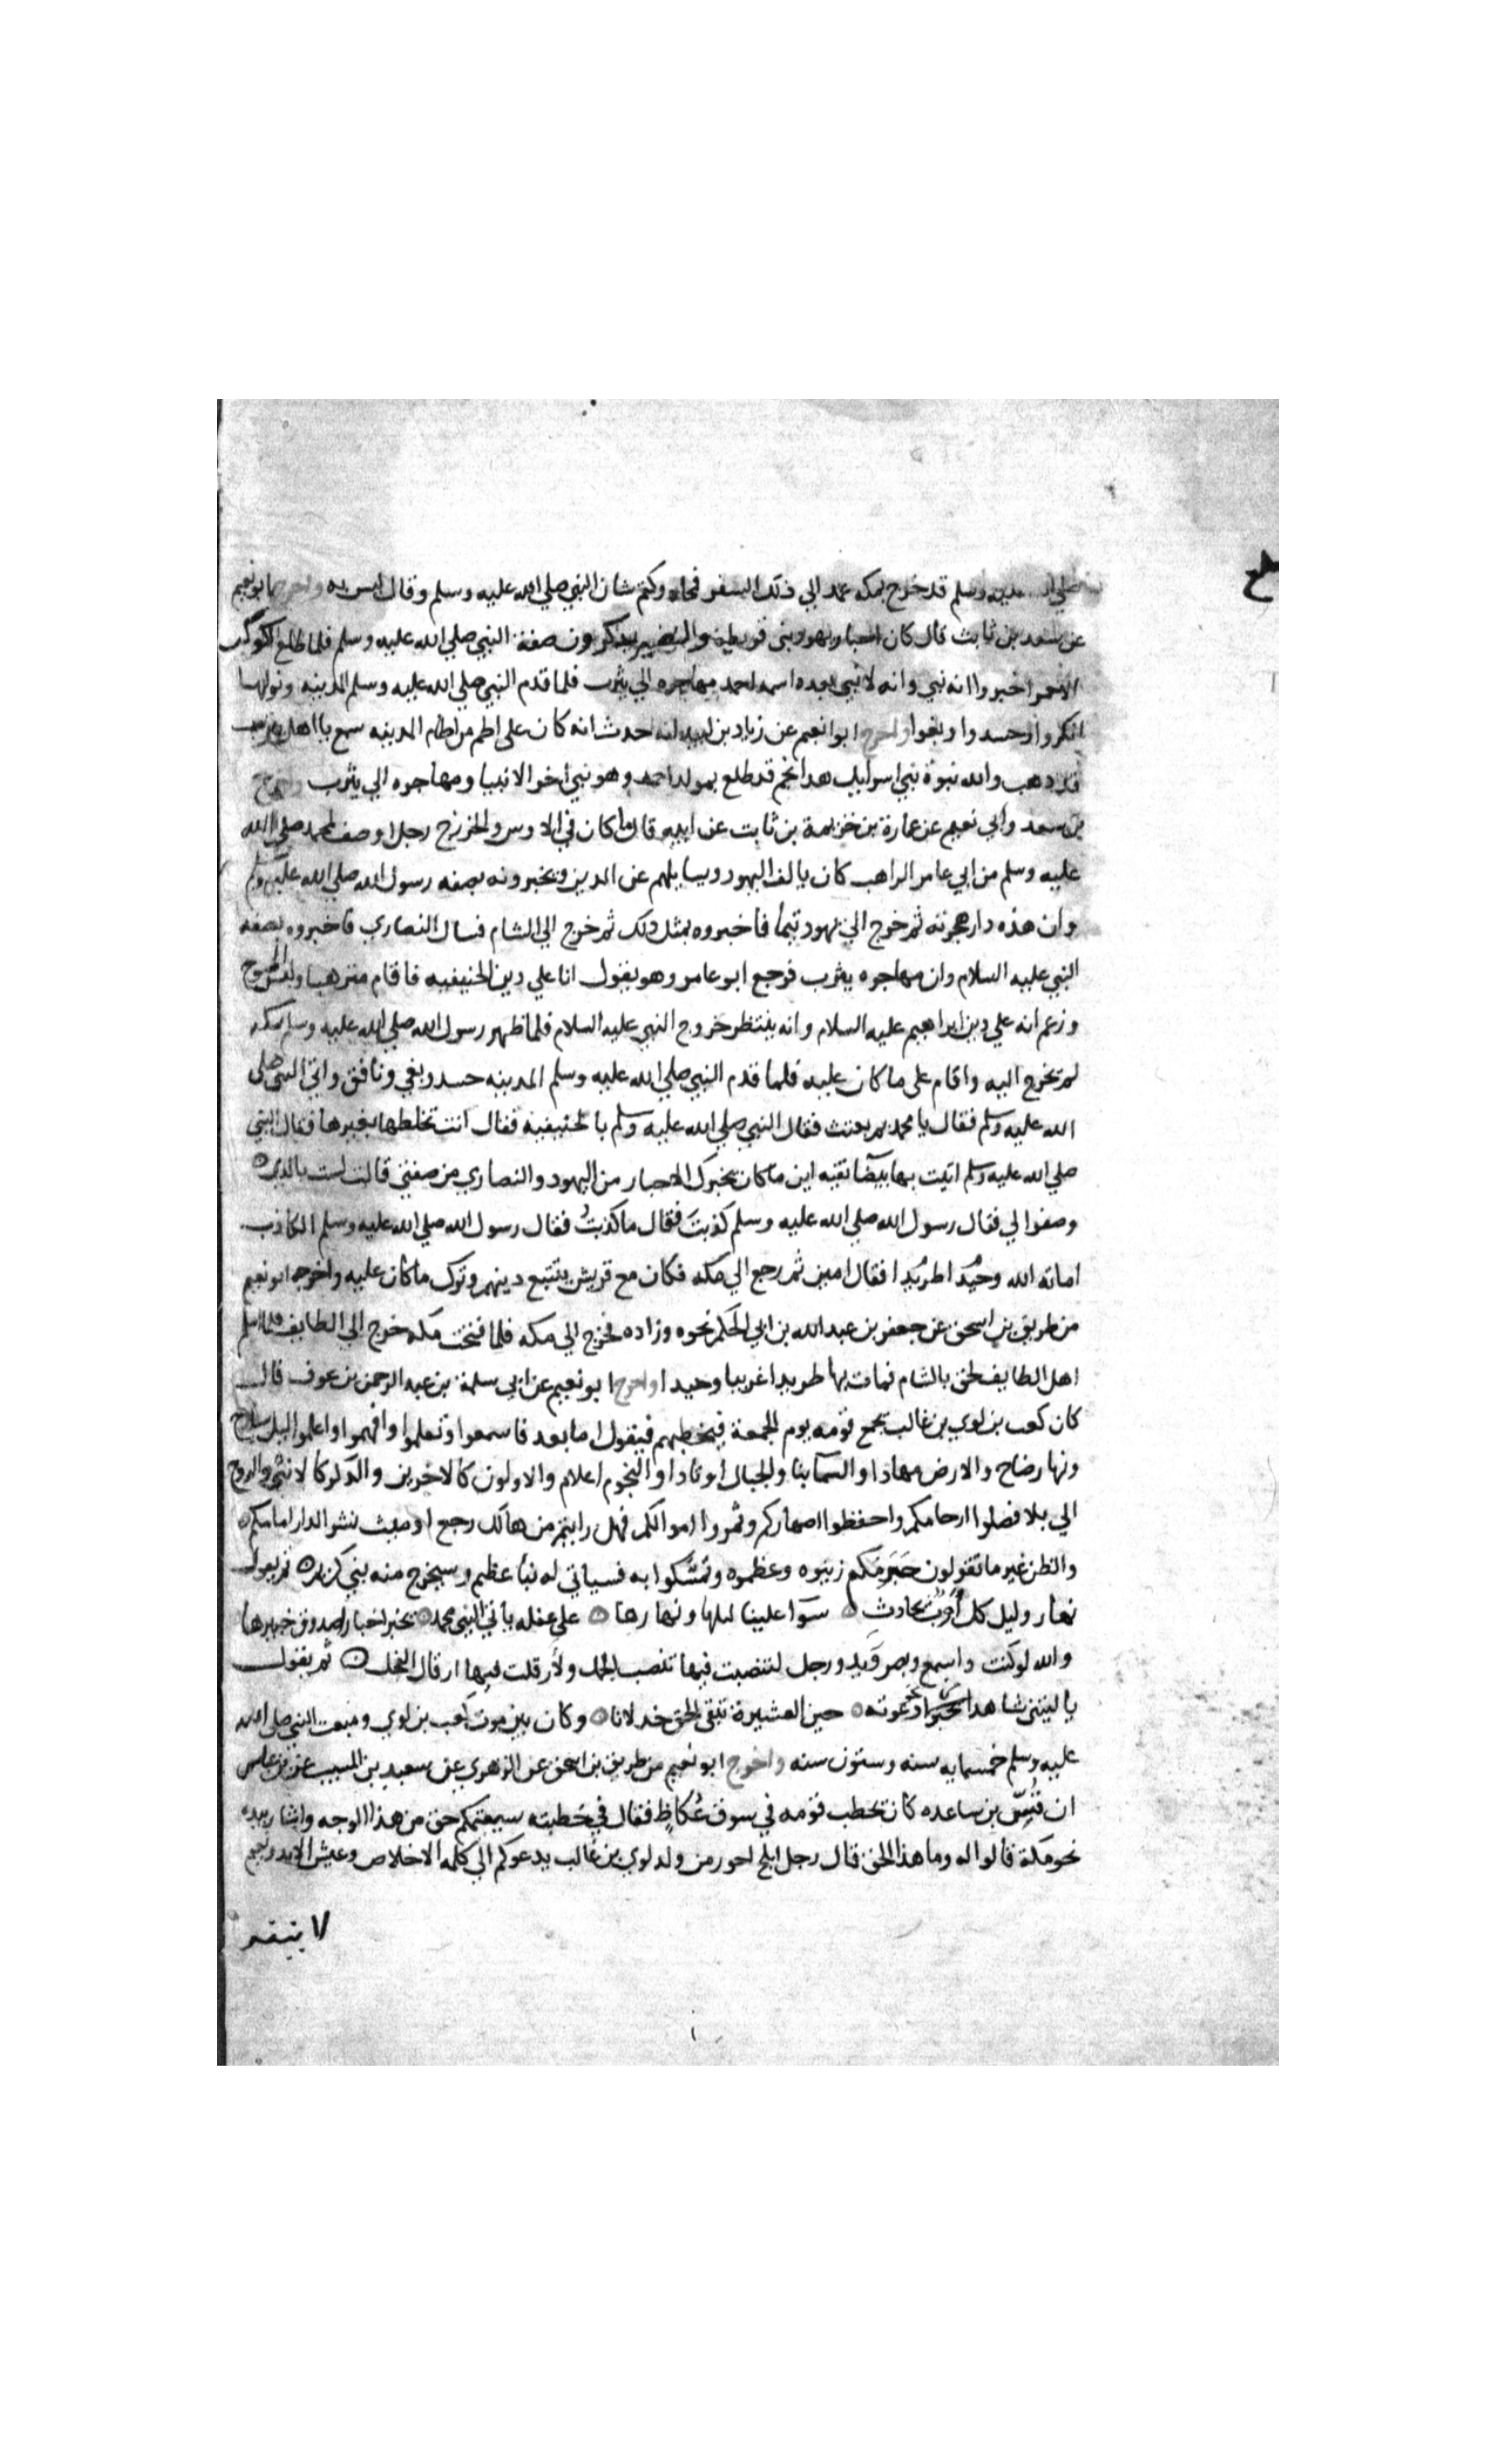 صلي الله عليه وسلم قد خرج بمكه عمد الي ذلك السفر فمحاه وكتم شان النبي صلي الله عليه وسلم وقال ليس به واخرج ابو نعيم
عن سعد بن ثابت قال كان احبار يهود بني قريظه والنضير يذكرون صفة النبي صلي الله عليه وسلم فلما طلع الكوكب
الاحمر اخبروا انه نبي وانه لا نبي بعده اسمه احمد مهاجره الي يثرب فلما قدم النبي صلي الله عليه وسلم المدينه ونزلها
انكروا وحسدوا وبغوا واخرج ابو نعيم عن زياد بن لبيد انه حدث انه كان على اطم من اطام المدينه سمع يا اهل يثرب
قد ذهب والله نبوة بني اسرايل هذا نجم قد طلع بمولد احمد وهو نبي اخر الانبيا ومهاجره الي يثرب واخرج
بن سعد وابي نعيم عن عمارة بن خزيمة بن ثابت عن ابيه قال ما كان في الاوس والخزرج رجل اوصف لمحمد صلي الله
عليه وسلم من ابي عامر الراهب كان يالف اليهود ويسايلهم عن الدين ويخبرونه بصفه رسول الله صلي الله عليه وسلم
وان هذه دار هجرته ثم خرج الي يهود تيما فاخبروه بمثل ذلك ثم خرج الي الشام فسال النصاري فاخبروه بصفه
النبي عليه السلام وان مهاجره يثرب فرجع ابو عامر وهو يقول انا علي دين الحنيفيه فاقام مترهبا ولبس المسوح
وزعم انه علي دين ابراهيم عليه السلام وانه ينتظر خروج النبي عليه السلام فلما ظهر رسول الله صلي الله عليه وسلم بمكه
لم يخرج اليه واقام على ما كان عليه فلما قدم النبي صلي الله عليه وسلم المدينه حسد وبغي ونافق واتي النبي صلي
الله عليه وسلم فقال يا محمد بم بعثت فقال النبي صلي الله عليه وسلم بالحنيفيه فقال انت تخلطها بغيرها فقال النبي
صلي الله عليه وسلم اتيت بها بيضا نقيه اين ما كان يخبرك الاحبار من اليهود والنصاري من صفتي قال لست بالذي
وصفوا لي فقال رسول الله صلي الله عليه وسلم كذبت فقال ما كذبت فقال رسول الله صلي الله عليه وسلم الكاذب
اماته الله وحيدا طريدا فقال امين ثم رجع الي مكه فكان مع قريش يتتبع دينهم وترك ما كان عليه واخرجه ابو نعيم
من طريق بن اسحق عن جعفر بن عبد الله بن ابي الحكم نحوه وزاده فخرج الي مكه فلما فتحت مكه خرج الي الطايف فلما اسلم
اهل الطايف لحق بالشام فمات بها طريدا غريبا وحيدا واخرج ابو نعيم عن ابي سلمة بن عبد الرحمن بن عوف قال
كان كعب بن لوي بن غالب يجمع قومه يوم الجمعة فيخطبهم فيقول اما بعد فاسمعوا وتعلموا وافهموا واعلموا ليل ساج
ونهار ضاح والارض مهادا والسما بنا والجبال اوتادا والنجوم اعلام والاولون كالاخرين والذكر كالانثي والروح
الي بلا فصلوا ارحامكم واحفظوا اصهاركم وثمروا اموالكم فهل رايتم من هالك رجع او ميث نشر الدار امامكم
والظن غير ما تقولون حرمكم زينوه وعظموه وتمسكوا به فسياتي له نبا عظيم وسيخرج منه نبي كريم ثم يقول
نهار وليل كل اوب بحادث سوا علينا ليلها ونهارها على غفله ياتي النبي محمد يخبر اخبارا صدوق خبيرها
والله لو كنت واسمع وبصر ويد ورجل لتنصبت فيها تنصب الجمل ولارقلت فيها ارقال الفحل ثم يقول
يا ليتني شاهدا نجوا دعوته حين العشيرة تبقي الحق خذلانا وكان بين موت كعب بن لوي ومبعث النبي صلي الله
عليه وسلم خمسمايه سنه وستون سنه واخرج ابو نعيم من طريق بن اسحق عن الزهري عن سعيد بن المسيب عن بن عباس
ان قس بن ساعده كان يخطب قومه في سوق عكاظ فقال في خطبته سيعمكم حق من هذا الوجه واشار بيده
نحو مكة قالوا له وما هذا الحق قال رجل ابلج احور من ولد لوي بن غالب يدعوكم الي كلمه الاخلاص وعيش الابد ونعيم
لا ينفد